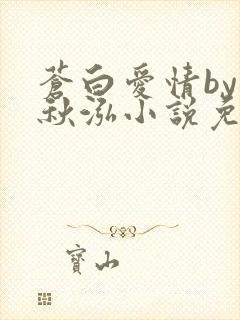 蒼白愛情by
秋泓小說免
寶山